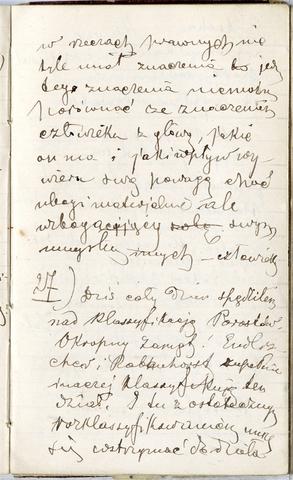 w rzeczach prawnych nie
tyle miał znaczenia bo jed
tego znaczenia niemożna
porównać ze znaczeniem
człowieka z głową, jakie
on ma i jaki wpływ wy-
wiera swą powagą choć
ubogi materjalnie ale
wzbogacający swym
umysłem innych — człowiek
27) Dziś cały dzień spędziłem
nad klassyfikacją Porostów.
Okropny zamęt! Endlis-
cher i Rabenhorst zupełnie
inaczej klassyfikują ten
dział. I tu z ostatecznym
rozklassyfikowaniem muszę
się wstrzymać do dzieła